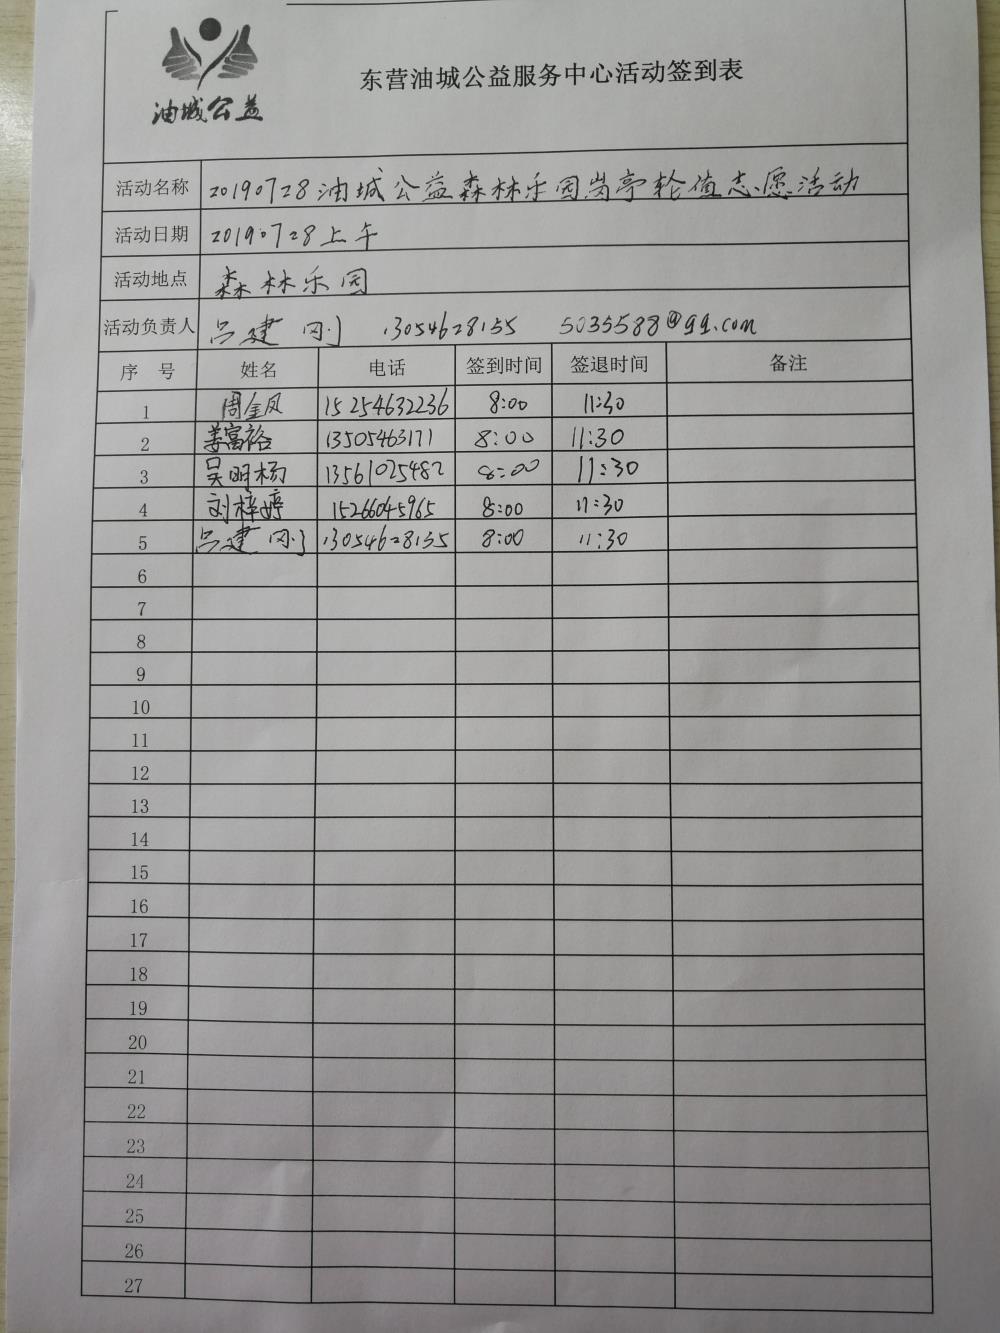 油城公益
东营油城公益服务中心活动签到表
活动名称 20190728油城公益森林乐园岗亭轮值志愿活动
活动日期 20190728上午
活动地点 森林乐园
活动负责人 吕建刚 13054628155 5035588@qq.com
序号 姓名 电话 签到时间 签退时间 备注
1 周金凤 15254632236 8:00 11:30
2 姜富裕 13505463171 8:00 11:30
3 吴明杨 13561025482 8:00 11:30
4 刘梓婷 15266045965 8:00 11:30
5 吕建刚 13054628155 8:00 11:30
6
7
8
9
10
11
12
13
14
15
16
17
18
19
20
21
22
23
24
25
26
27